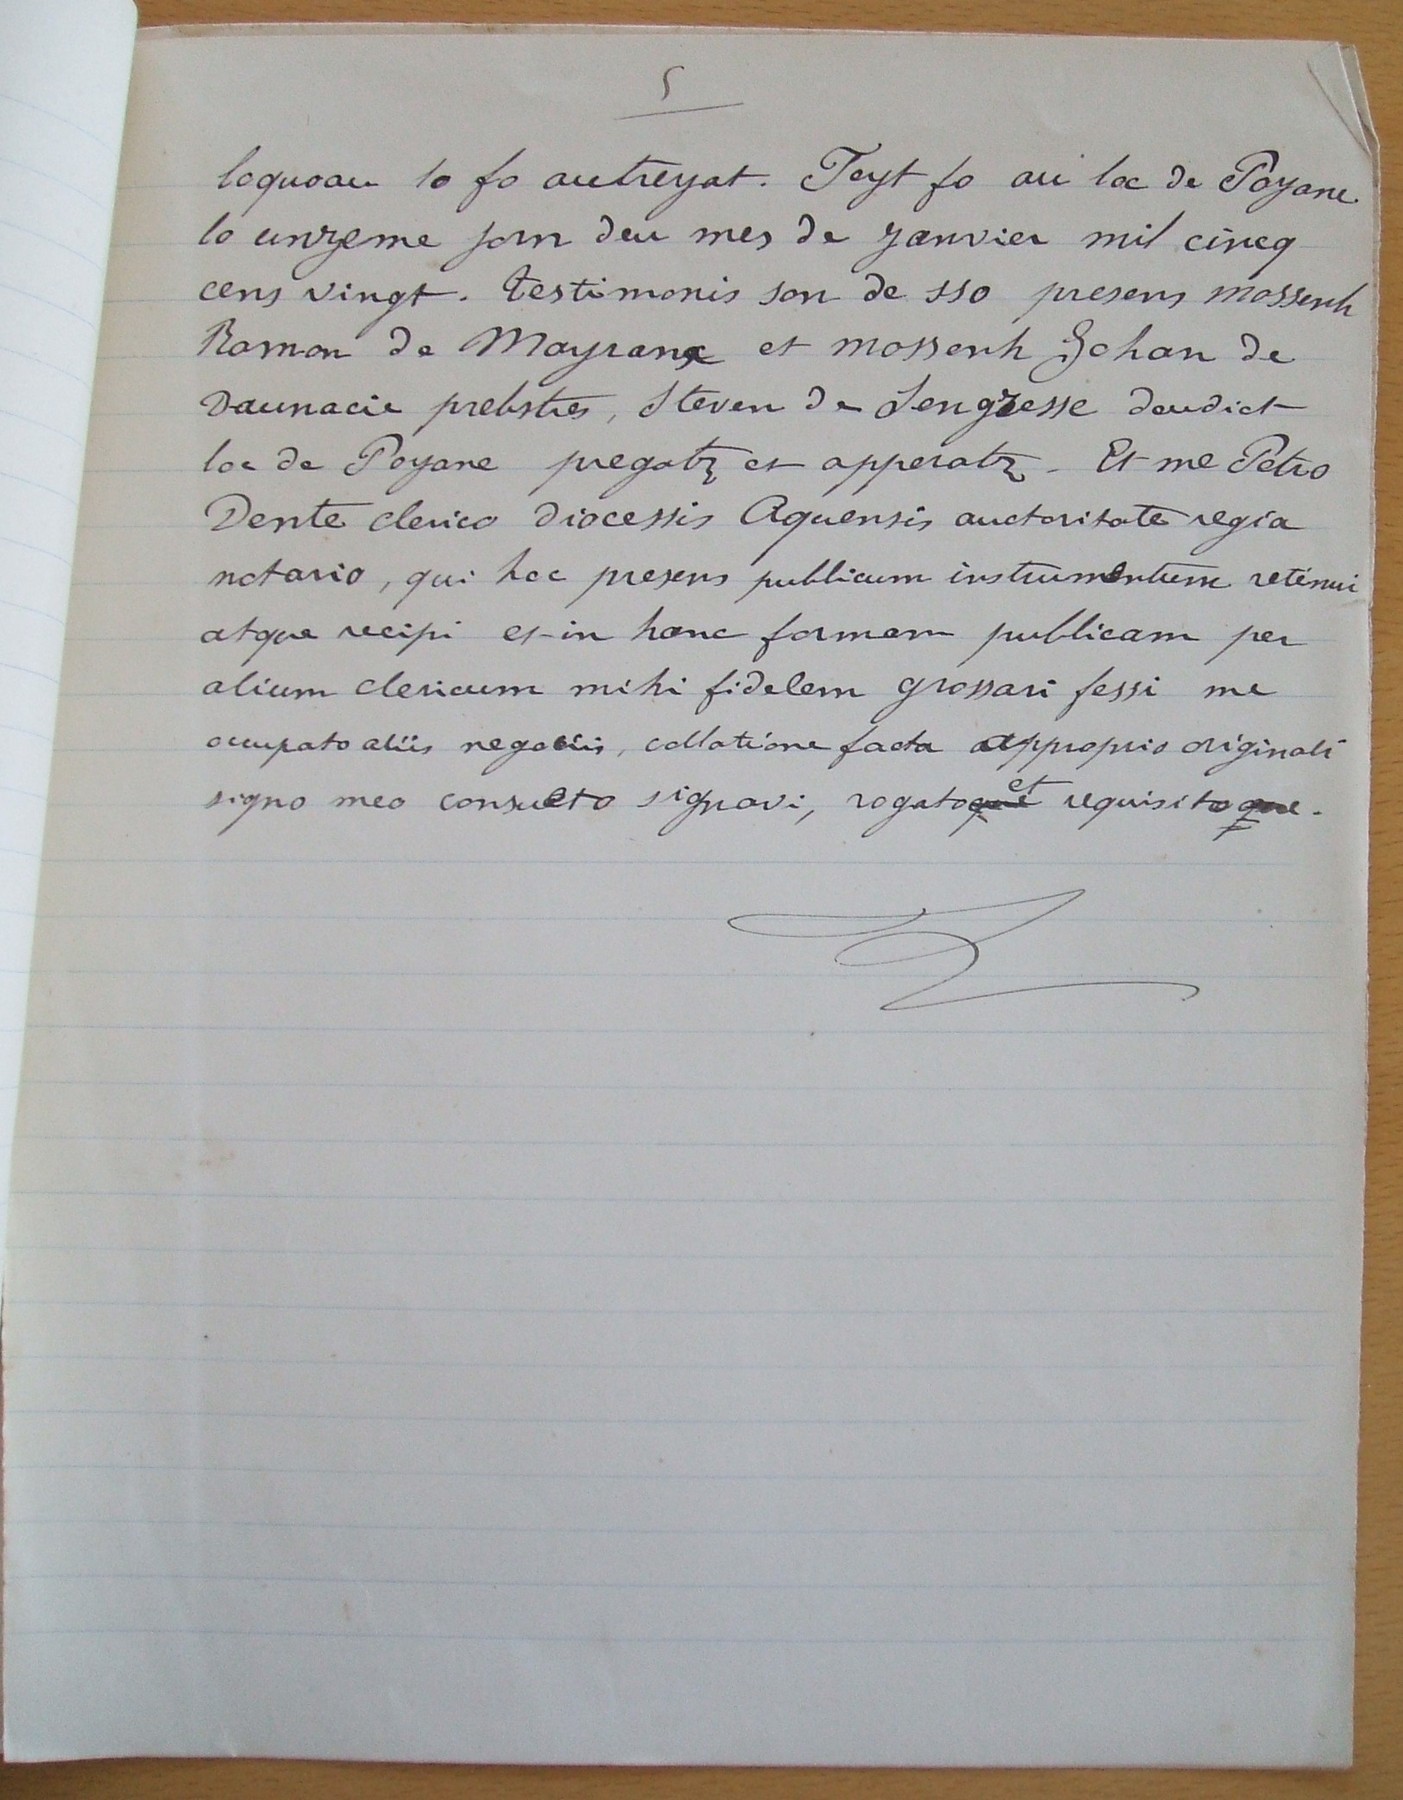 5
loquoau lo fo autreyat. Feyt fo au loc de Poyane
lo unzeme jorn deu mes de janvier mil cincq
cens vingt. Testimonis son de sso presens mossenh
Ramon de Mayranx et mossenh Johan de
Daunacie prebstres, Steven de Sengresse deudict
loc de Poyane pregatz et apperatz - Et me Petro
Dente clerico diocessis Aquensis auctoritate regia
notario, qui hoc presens publicum instrumentum retinui
atque recipi et in hanc formam publicam per
alium clericum mihi fidelem grossari fessi me
occupato aliis negociis, collatione facta approprio originali
signo meo consueto signavi, rogato et requisito que.